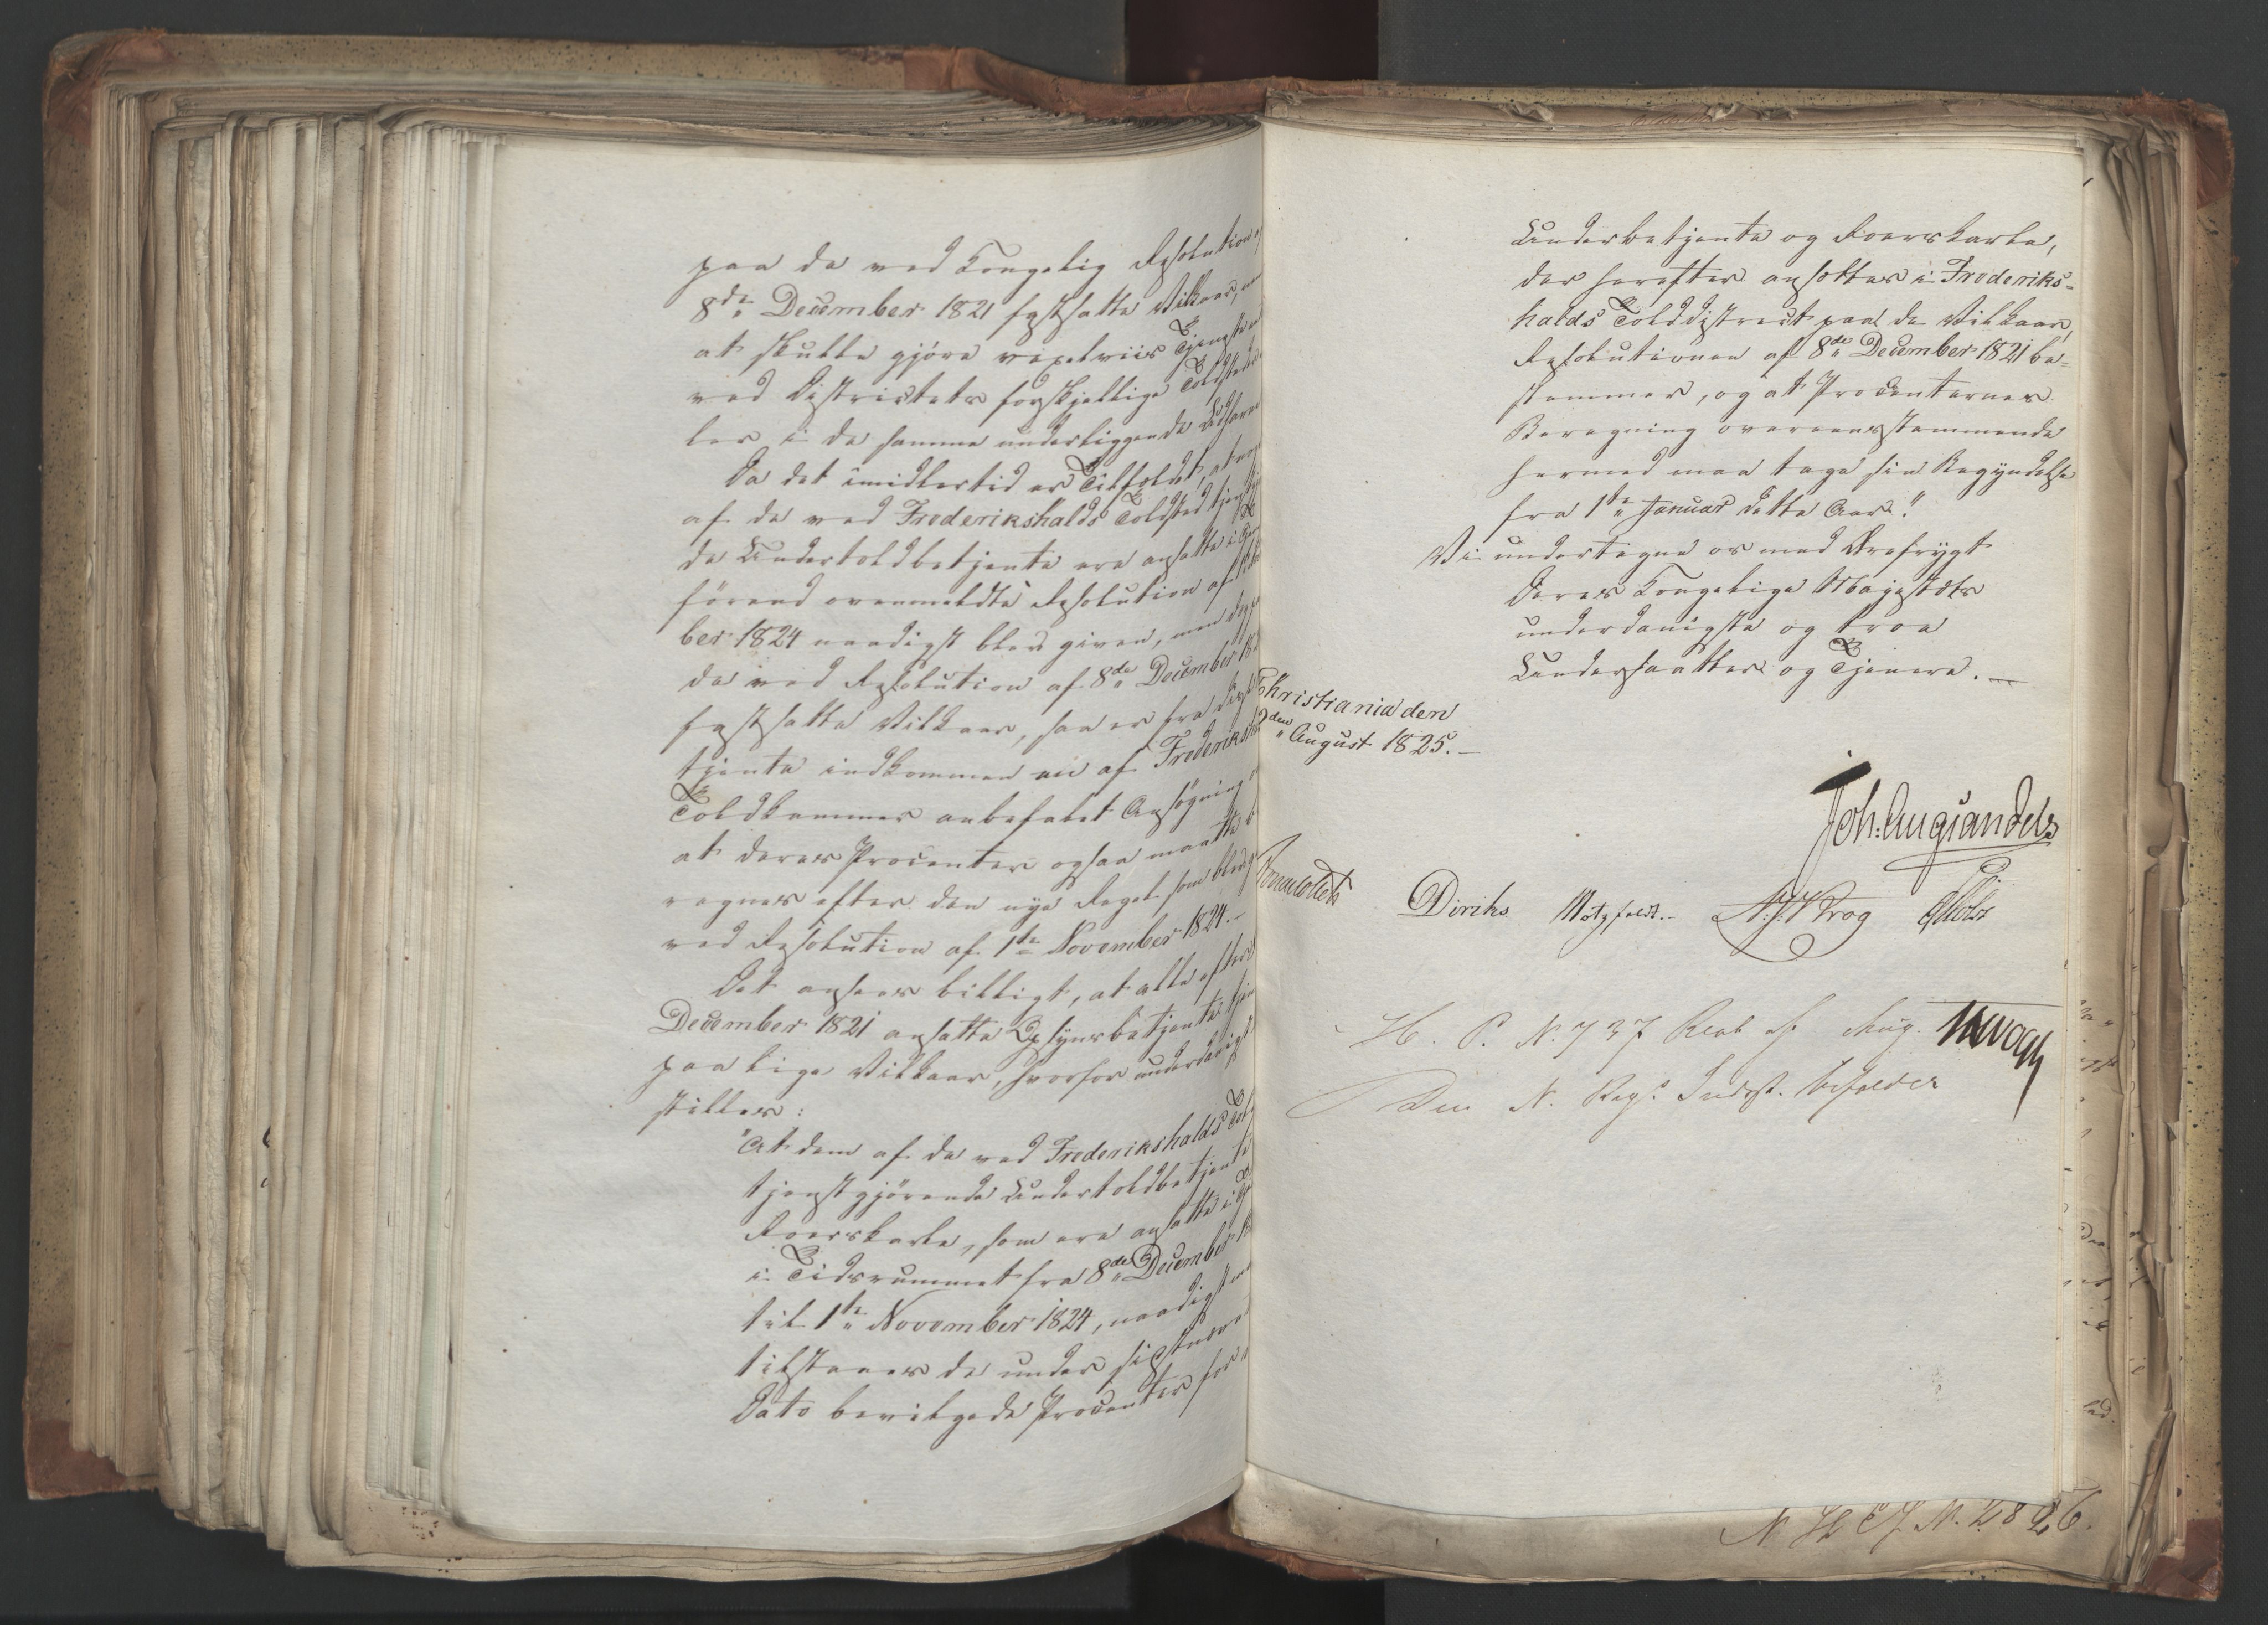 paa de ved Kongelig Resolution
8de December 1821 fastsatte Vilkaar,
at skulle gjöre vexelviis Tjeneste
ved Districtets forskjellige Toldsteder
ler i de samme underliggende Udhavne
Da det imidlertid er Tilfældet, at
af de ved Frederikshalds Toldsted tjenst
de Undertoldbetjente ere ansatte i
förend ovenmeldte Resolution af
ber 1824 naadigst blev given, men
de ved Resolution af 8de December
fastsatte Vilkaar, saa er fra
tjente indkommen en af Frederiksh
Toldkammer anbefalet Ansögning
at deres Procenter ogsaa maatte
regnes efter den nye Regel som blev
ved Resolution af 1te November 1824.-
Det ansees billigt, at alle efter
December 1821 ansatte Opsynsbetjente
paa lige Vilkaar, hvorfor underdanigst
stilles:
"At dem af de ved Frederikshalds
tjenstgjörende Undertoldbetjente
Roerskarle, som ere ansatte i
i Tidsrummet fra 8de December
til 1te November 1824, naadigst
tilstaaes de under sidstnævnte
Dato bevilgede Procenter for
Underbetjente og Roerskarle,
der herefter ansættes i Frederiks-
halds Tolddistrict paa de Vilkaar,
Resolutionen af 8de December 1821 be-
stemmer, og at Procenternes
Beregning overeensstemmende
hermed maa tage sin Begyndelse
fra 1te Januar dette Aar."
Vi undertegne os med Ærefrygt
Deres Kongelige Majestæts
underdanigste og troe
Undersaatter og Tjenere.-
Christiania den
2den August 1825.-
Joh: Aug: Sandels
Sommerfeldt Diriks Motzfeldt.- A: J: Krog P. Holst
H. P. No 737 Aug. J H Vogt
Den N. Reg: Indst. bifaldes
N H C J N. 4826.